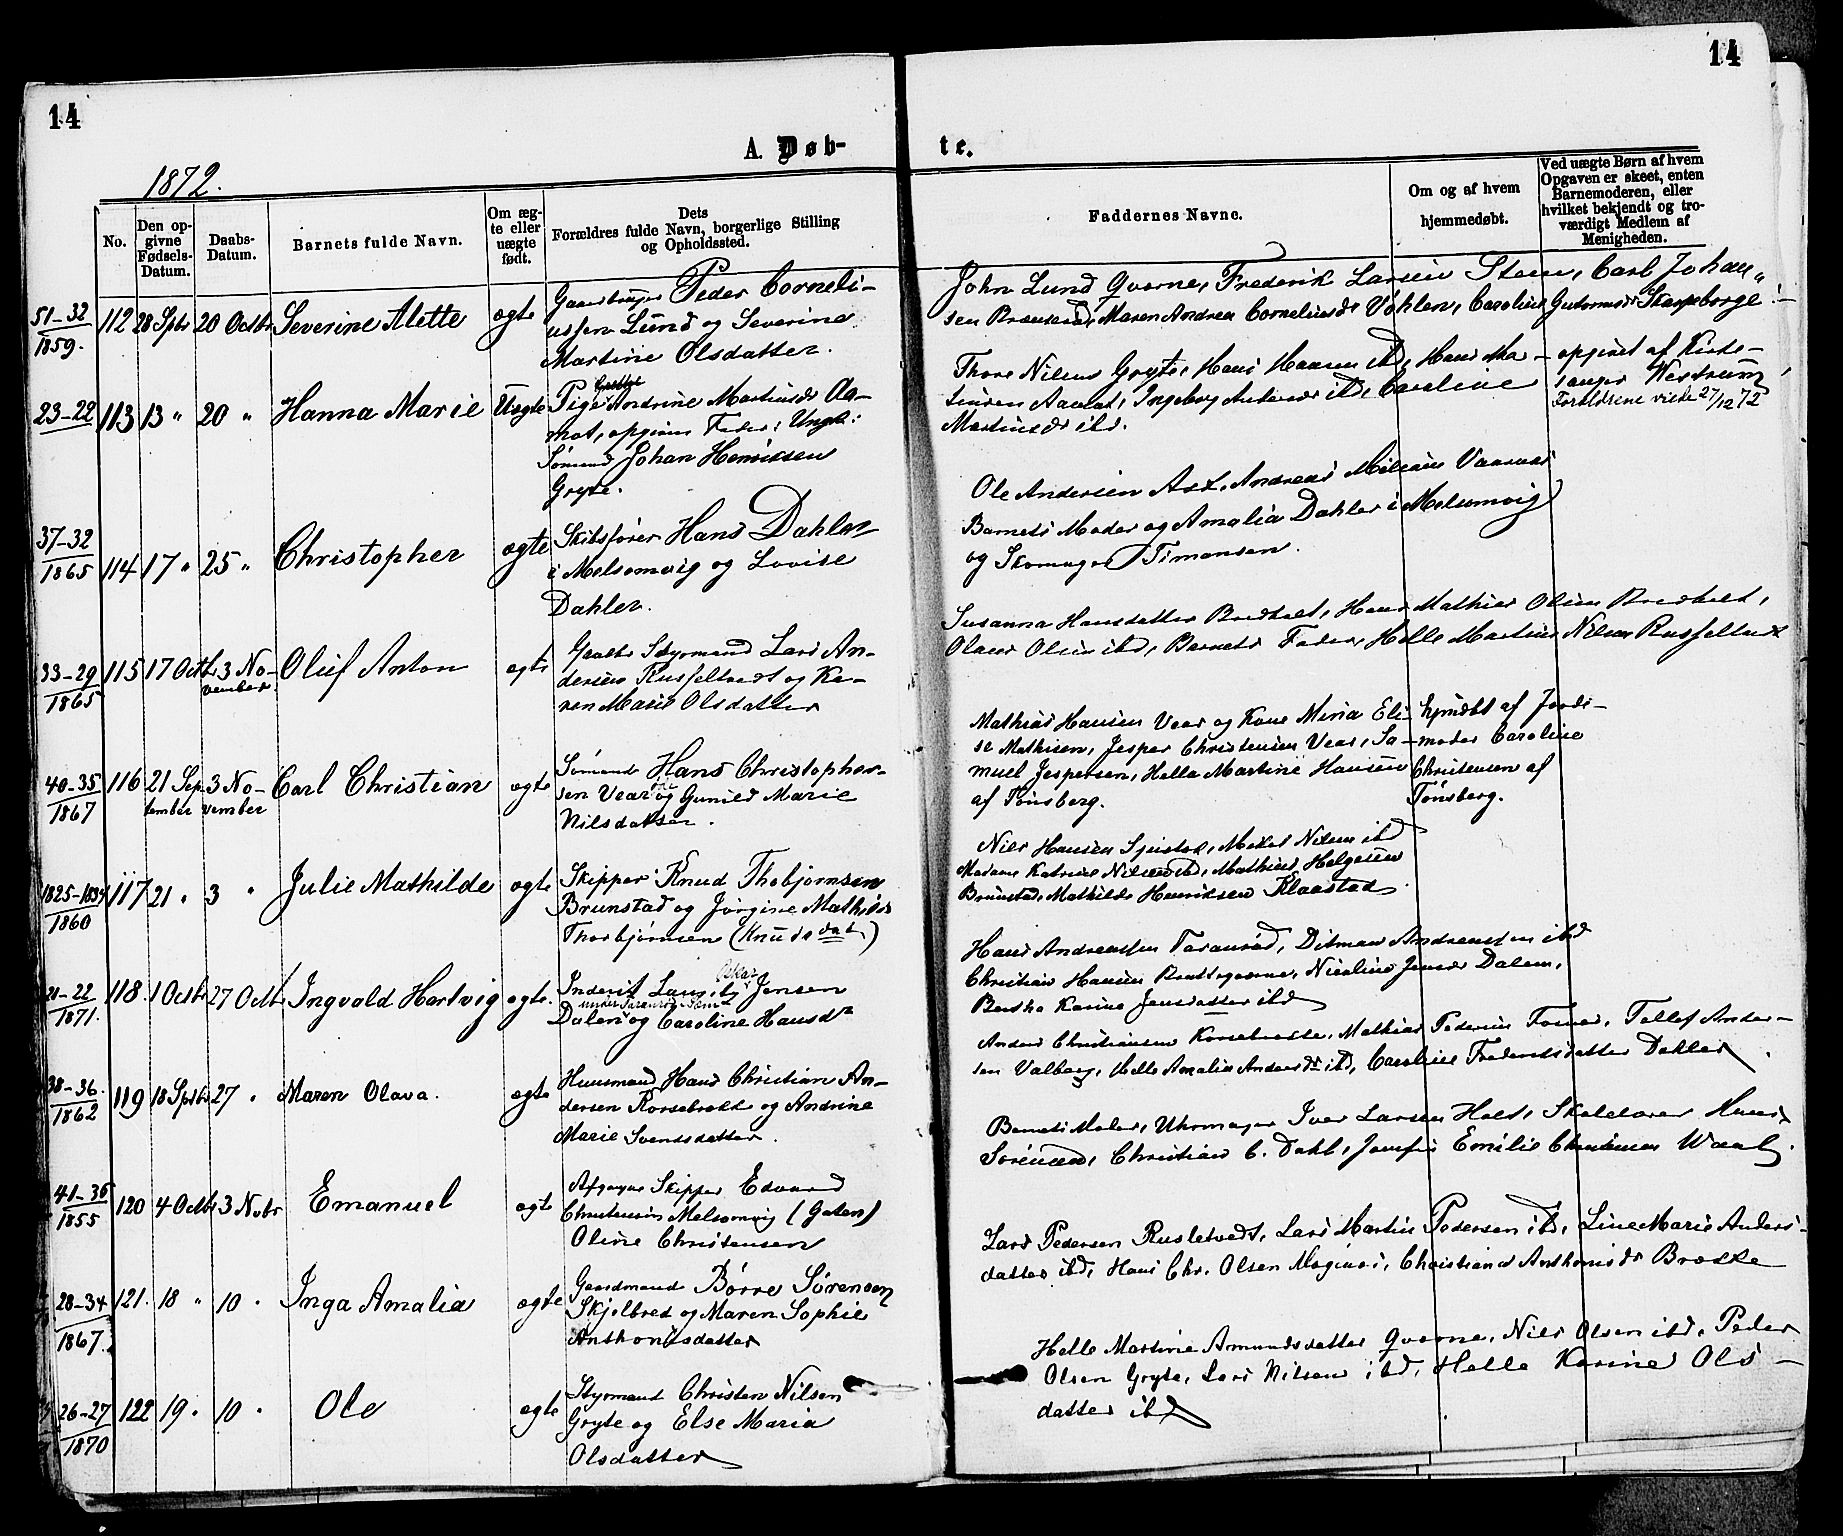 14
14
A. Døb-
te.
1872.
No.
Den op-
givne
Fødsels-
Datum.
Daabs-
Datum.
Barnets fulde Navn.
Om æg-
te eller
uægte
født.
Dets
Forældres fulde Navn, borgerlige Stilling
og Opholdssted.
Faddernes Navne.
Om og af hvem
hjemmedøbt.
Ved uægte Børn af hvem
Opgaven er skeet, enten
Barnemoderen, eller
hvilket bekjendt og tro-
værdigt Medlem af
Menigheden.
51-32
1859.
112
28 Sptbr
20 Octbr
Severine Alette
ægte
Gaardbruger Peder Corneli-
ussen Lund og Severine
Martine Olsdatter.
John Lund Qverne, Frederik Larsen Steen, Carl Johan-
sen Maren Andrea Corneliusdr Vøhlen,
23-22
113
13 "
20 "
Hanna Marie
Uægte
Pige Andrine Martinsdr Aa-
mot, opgiven Fader: Ungk:
Sømand Johan Henriksen
Gryte.
Thore Nilsen Gryte, Hans Hansen ibd, Hans Ma-
Aamot, Ingeborg ibd, Caroline
Martinsdr ibd.
opgivet af Kirke-
sanger Verdrum
Forældrene viede 27/12 72
37-32
1865
114
17 "
25 "
Christopher
ægte
Skibsfører Hans Dahler
i Melsomvig og Lovise
Dahler.
Ole Andersen Ask, Andreas
Barnets Moder og Amalia Dahler i Melsomvig
og Skomager Timansen.
33-29
1865
115
17 Octbr
3 No-
vember.
Oluf Anton
ægte
Styrmand Lars An-
dersen og Ka-
ren Marie Olsdatter
Susanna Hansdatter Hans Mathias Olsen
Olsen ibd, Barnets Fader, Helle Martine Nilsen
40-35
1867
116
21 Sep
tember
3 No-
vember
Carl Christian
ægte
Sømand Hans Christopher-
sen Vear og Gunild Marie
Nilsdatter.
Mathias Hansen Vear og Kone Mina Eli-
se Mathisen, Jesper Christensen Vear, Sa-
muel Jespersen, Helle Martine Hansen
af Tønsberg.
hjmdbt af Jorde-
moder Caroline
Christensen af
Tønsberg.
1825-1834
1860
117
21 "
3 "
Julie Mathilde
ægte
Skipper Knud Thobjørnsen
Brunstad og Jørgine Mathilde
Thorbjørnsen (Knudsdat.)
Nils Hansen Nilsen ibd
Madame Katrine Nilsen ibd, Mathias Helgesen
Brunstad, Mathilde Henriksen Klaastad.
21-22
1871.
118
1 Octbr
27 Octbr
Ingvald Hartvig
ægte.
Inderst Lauritz Oskar Jensen
Dalen og Caroline Hansdr
Hans Andreassen Taranrød, Ditman Andreassen ibd
Christian Hansen Nicoline Jensdr Dalen,
Bertha Karine Jensdatter ibd
38-36.
1862
119
18 Sptbr
27 "
Maren Olava.
ægte
Huusmand Hans Christian An-
dersen og Andrine
Marie Svendsdatter.
Anders Christiansen Mathias Pedersen Tollef Ander-
sen Valberg, Helle Amalia Andersdr ibd, Caroline Frederiksdatter Dahler.
41-36
1855
120
4 Octbr
3 Novbr
Emanuel
ægte
Skipper Edvard
Christensen Melsomvig (Gaten)
Oline Christensen
Barnets Moder, Uhrmager Iver Larsen Holt, Skolelærer
Sørensen, Christian C. Dahl, Jomfru Emilie Christensen
28-34
1867.
121.
18 "
10 "
Inga Amalia
ægte
Gaardmand Børre Sørensen
Skjelbred og Maren Sophie
Anthonisdatter
Lars Pedersen Lars Martin Pedersen ibd, Line Marie Anders-
datter ibd, Hans Chr. Olsen Christiana Anthonisdr
26-27
1870
122
19 "
10 "
Ole
ægte
Styrmand Christen Nilsen
Gryte og Else Maria
Olsdatter
Helle Martine Amundsdatter Qverne, Nils Olsen ibd, Peder
Olsen Gryte, Lars Nilsen ibd, Helle Karine Ols-
datter ibd